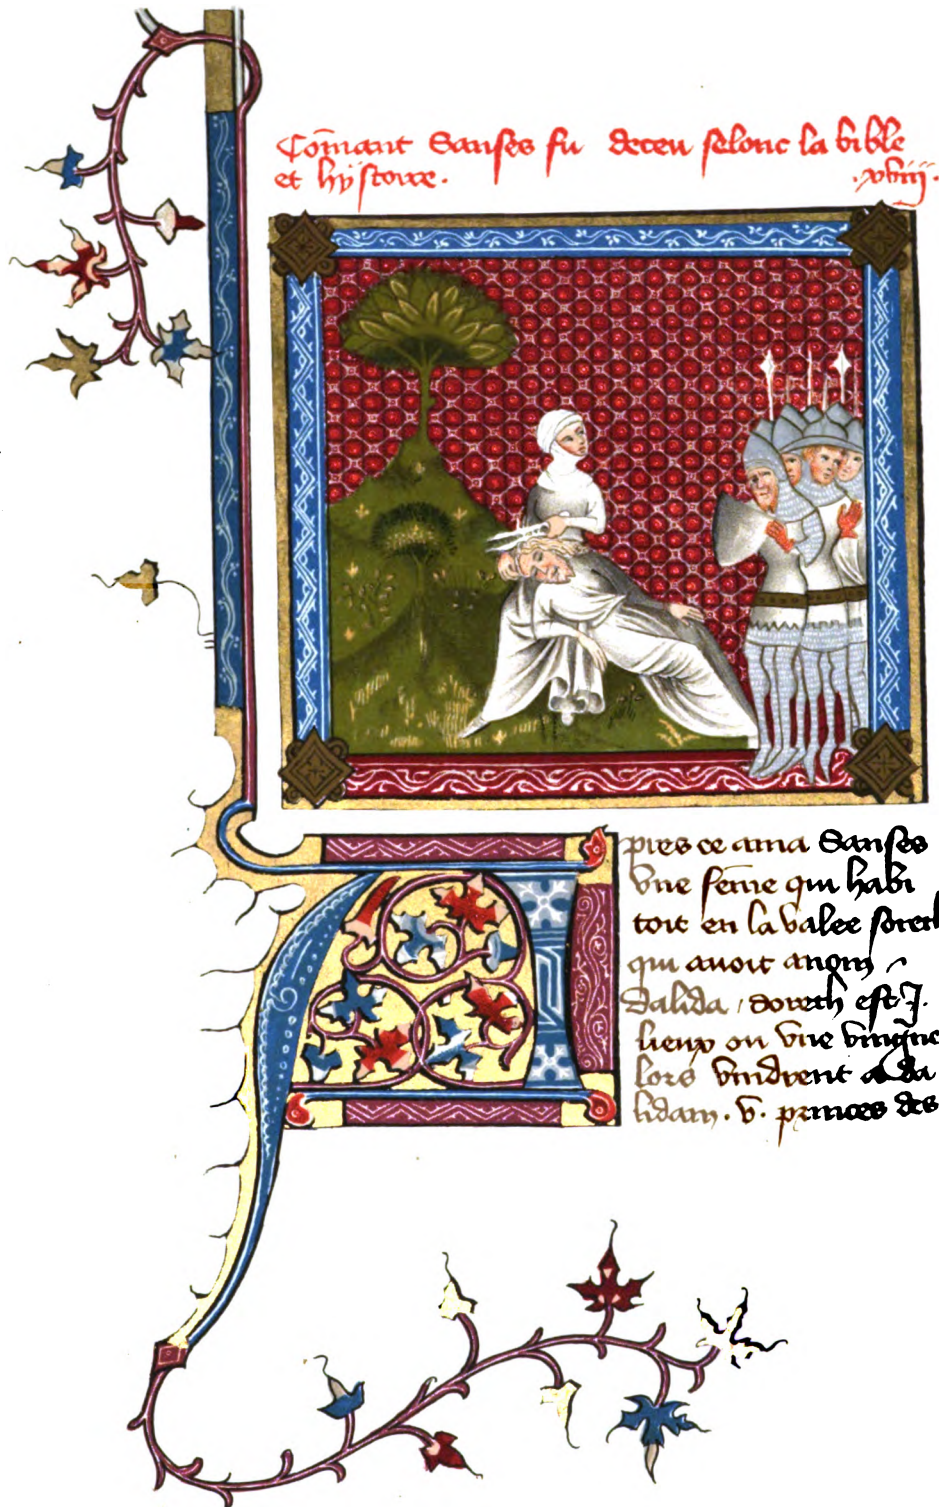 Cōmant Sanses fu deceu selonc la bible
et hÿstoire. .xviij.
Apres ce ama Sanses
vne fēme qui habi
toit en la valee soreth
qui auoit anom
dalida / soreth est .J.
lieux ou vne vingne
lors vindrent a da
lidam . v . princes des